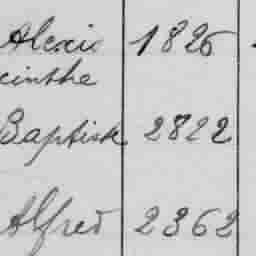 Alexis 1826
cinthe
Baptiste 2822
Alfred 2362